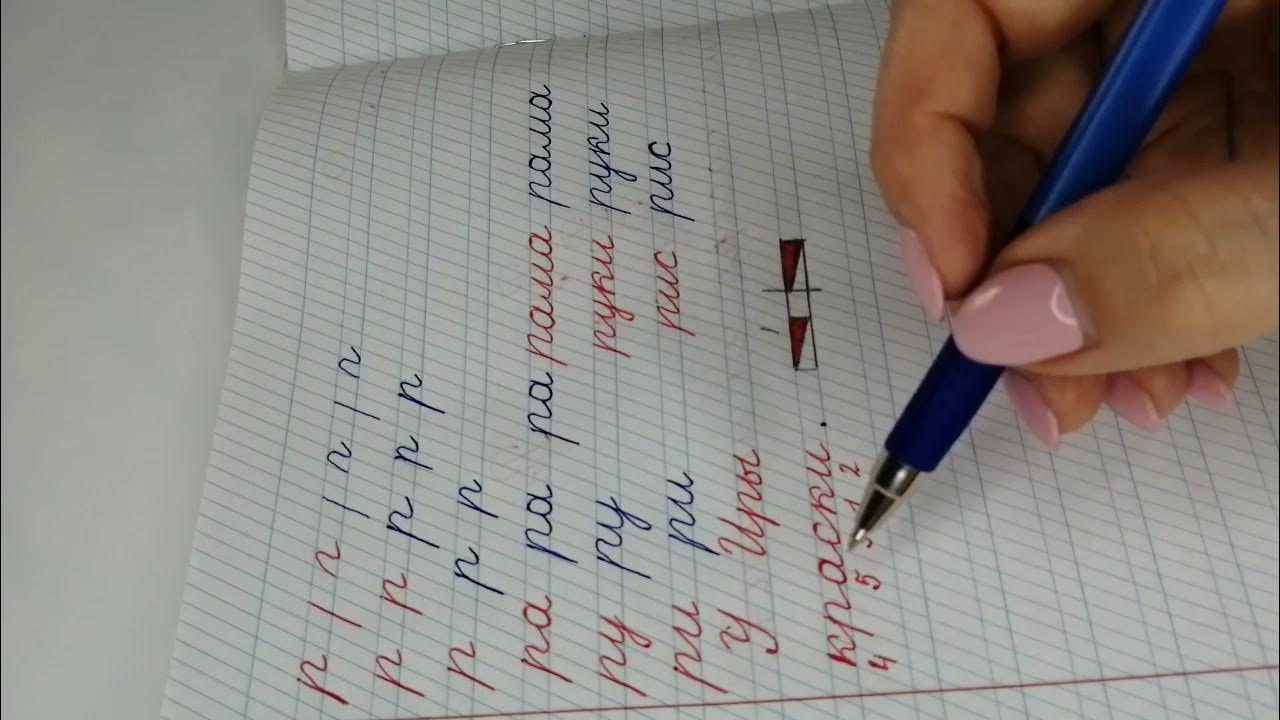 р / г / г / г
р р р р р
р р р
ра ра ра рама рама
ру ру руки руки
ри ри рис рис
У Иры
краски.
4 5 2